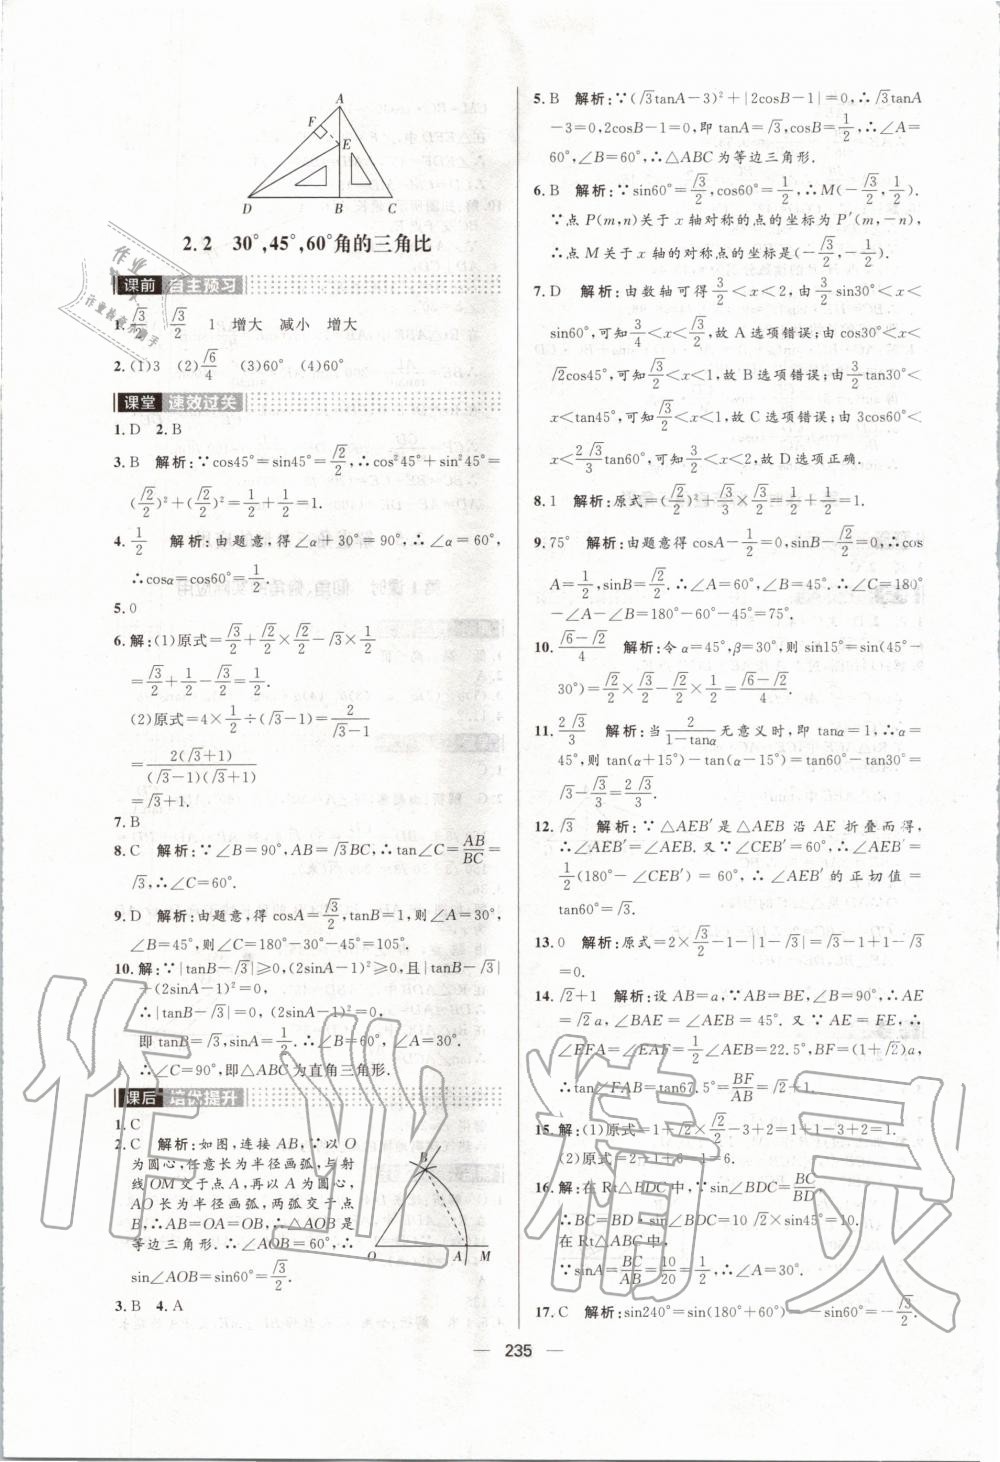 A
F
E
D B C
2.2 30°,45°,60°角的三角比
课前 自主预习
1. √3/3 √3/2 1 增大 减小 增大
2.(1)3 (2)√6/4 (3)60° (4)60°
课堂 速效过关
1.D 2.B
3.B 解析:∵cos45°=sin45°=√2/2,∴cos²45°+sin²45°=
(√2/2)²+(√2/2)²=1/2+1/2=1.
4. 1/2 解析:由题意,得∠α+30°=90°,∴∠α=60°,
∴cosα=cos60°=1/2.
5.0
6.解:(1)原式=√3/2+√2/2×√2/2-√3×1/2
=√3/2+1/2-√3/2=1/2.
(2)原式=4×1/2÷(√3-1)=2/(√3-1)
=2(√3+1)/(√3-1)(√3+1)
=√3+1.
7.B
8.C 解析:∵∠B=90°,AB=√3BC,∴tan∠C=AB/BC=
√3,∴∠C=60°.
9.D 解析:由题意,得cosA=√3/2,tanB=1,则∠A=30°,
∠B=45°,则∠C=180°-30°-45°=105°.
10.解:∵|tanB-√3|≥0,(2sinA-1)²≥0,且|tanB-√3|
+(2sinA-1)²=0,
∴|tanB-√3|=0,(2sinA-1)²=0,
即tanB=√3,sinA=1/2.∴∠B=60°,∠A=30°.
∴∠C=90°,即△ABC为直角三角形.
课后 培优提升
1.C
2.C 解析:如图,连接AB,∵以O
为圆心,任意长为半径画弧,与射
线OM交于点A,再以A为圆心,
AO长为半径画弧,两弧交于点
B,∴AB=OA=OB,∴△AOB是
等边三角形.∴∠AOB=60°,∴
sin∠AOB=sin60°=√3/2.
B
O A M
3.B 4.A
5.B 解析:∵(√3tanA-3)²+|2cosB-1|=0,∴√3tanA
-3=0,2cosB-1=0,即tanA=√3,cosB=1/2,∴∠A=
60°,∠B=60°,∴△ABC为等边三角形.
6.B 解析:∵sin60°=√3/2,cos60°=1/2,∴M(-√3/2,1/2).
∵点P(m,n)关于x轴对称的点的坐标为P′(m,-n),
∴点M关于x轴的对称点的坐标是(-√3/2,-1/2).
7.D 解析:由数轴可得3/2<x<2,由3/2sin30°<x<
sin60°,可知3/4<x<√3/2,故A选项错误;由cos30°<x<
√2cos45°,可知√3/2<x<1,故B选项错误;由3/2tan30°<
x<tan45°,可知√3/2<x<1,故C选项错误;由3cos60°<
x<2√3/3tan60°,可知3/2<x<2,故D选项正确.
8.1 解析:原式=(√2/2)²+√3/3×√3/2=1/2+1/2=1.
9.75° 解析:由题意得cosA-1/2=0,sinB-√2/2=0,∴cos
A=1/2,sinB=√2/2.∴∠A=60°,∠B=45°.∴∠C=180°
-∠A-∠B=180°-60°-45°=75°.
10. (√6-√2)/4 解析:令α=45°,β=30°,则sin15°=sin(45°-
30°)=√2/2×√3/2-√2/2×1/2=(√6-√2)/4.
11. 2√3/3 解析:当2/(1-tanα)无意义时,即tanα=1,∴α=
45°,则tan(α+15°)-tan(α-15°)=tan60°-tan30°=
√3-√3/3=2√3/3.
12.√3 解析:∵△AEB′是△AEB沿AE折叠而得,
∴∠AEB′=∠AEB.又∵∠CEB′=60°,∴∠AEB′=
1/2(180°-∠CEB′)=60°,∴∠AEB′的正切值=
tan60°=√3.
13.0 解析:原式=2×√3/2-1-|1-√3|=√3-1-√3+1
=0.
14.√2+1 解析:设AB=a,∵AB=BE,∠B=90°,∴AE
=√2a,∠BAE=∠AEB=45°.又∵AE=FE,∴
∠EFA=∠EAF=1/2∠AEB=22.5°,BF=(1+√2)a,
∴tan∠FAB=tan67.5°=BF/AB=√2+1.
15.解:(1)原式=1+√2×√2/2-3+2=1+1-3+2=1.
(2)原式=1+6-1=6.
16.解:在Rt△BDC中,∵sin∠BDC=BC/BD,
∴BC=BD·sin∠BDC=10√2×sin45°=10.
在Rt△ABC中,
∵sinA=BC/AB=10/20=1/2,∴∠A=30°.
17.C 解析:sin240°=sin(180°+60°)=-sin60°=-√3/2.
235
作业精灵